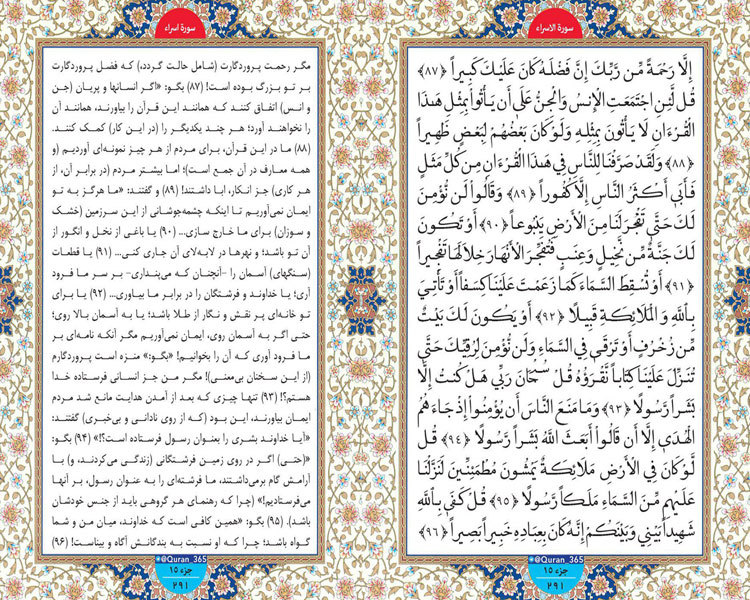 سورة الاسراء
إِلَّا رَحْمَةً مِّن رَّبِّكَ إِنَّ فَضْلَهُ كَانَ عَلَيْكَ كَبِيراً ﴿٨٧﴾
قُل لَّئِنِ اجْتَمَعَتِ الْإِنسُ وَالْجِنُّ عَلَى أَن يَأْتُوا بِمِثْلِ هَذَا
الْقُرْءَانِ لَا يَأْتُونَ بِمِثْلِهِ وَلَوْ كَانَ بَعْضُهُمْ لِبَعْضٍ ظَهِيراً
﴿٨٨﴾ وَلَقَدْ صَرَّفْنَا لِلنَّاسِ فِي هَذَا الْقُرْءَانِ مِن كُلِّ مَثَلٍ
فَأَبَى أَكْثَرُ النَّاسِ إِلَّا كُفُوراً ﴿٨٩﴾ وَقَالُوا لَن نُّؤْمِنَ
لَكَ حَتَّى تَفْجُرَ لَنَا مِنَ الْأَرْضِ يَنبُوعاً ﴿٩٠﴾ أَوْ تَكُونَ
لَكَ جَنَّةٌ مِّن نَّخِيلٍ وَعِنَبٍ فَتُفَجِّرَ الْأَنْهَارَ خِلَالَهَا تَفْجِيراً
﴿٩١﴾ أَوْ تُسْقِطَ السَّمَاءَ كَمَا زَعَمْتَ عَلَيْنَا كِسَفاً أَوْ تَأْتِيَ
بِاللَّهِ وَ الْمَلَائِكَةِ قَبِيلًا ﴿٩٢﴾ أَوْ يَكُونَ لَكَ بَيْتٌ
مِّن زُخْرُفٍ أَوْ تَرْقَى فِي السَّمَاءِ وَلَن نُّؤْمِنَ لِرُقِيِّكَ حَتَّى
تُنَزِّلَ عَلَيْنَا كِتَاباً نَّقْرَؤُهُ قُلْ سُبْحَانَ رَبِّي هَلْ كُنتُ إِلَّا
بَشَراً رَّسُولًا ﴿٩٣﴾ وَمَا مَنَعَ النَّاسَ أَن يُؤْمِنُوا إِذْ جَاءَهُمُ
الْهُدَى إِلَّا أَن قَالُوا أَبَعَثَ اللَّهُ بَشَراً رَّسُولًا ﴿٩٤﴾ قُل
لَّوْ كَانَ فِي الْأَرْضِ مَلَائِكَةٌ يَمْشُونَ مُطْمَئِنِّينَ لَنَزَّلْنَا
عَلَيْهِم مِّنَ السَّمَاءِ مَلَكاً رَّسُولًا ﴿٩٥﴾ قُلْ كَفَى بِاللَّهِ
شَهِيداً بَيْنِي وَبَيْنَكُمْ إِنَّهُ كَانَ بِعِبَادِهِ خَبِيراً بَصِيراً ﴿٩٦﴾
@Quran_365
جزء ۱۵
۲۹۱
سورة اسراء
مگر رحمت پروردگارت (شامل حالت گردد،) که فضل پروردگارت
بر تو بزرگ بوده است! (۸۷) بگو: «اگر انسانها و پریان (جن
و انس) اتفاق کنند که همانند این قرآن را بیاورند، همانند آن
را نخواهند آورد؛ هر چند یکدیگر را (در این کار) کمک کنند.
(۸۸) ما در این قرآن، برای مردم از هر چیز نمونه‌ای آوردیم (و
همه معارف در آن جمع است)؛ اما بیشتر مردم (در برابر آن، از
هر کاری) جز انکار، ابا داشتند! (۸۹) و گفتند: «ما هرگز به تو
ایمان نمی‌آوریم تا اینکه چشمه‌جوشانی از این سرزمین (خشک
و سوزان) برای ما خارج سازی... (۹۰) یا باغی از نخل و انگور از
آن تو باشد؛ و نهرها در لابه‌لای آن جاری کنی... (۹۱) یا قطعات
(سنگهای) آسمان را -آنچنان که می‌پنداری- بر سر ما فرود
آری؛ یا خداوند و فرشتگان را در برابر ما بیاوری... (۹۲) یا برای
تو خانه‌ای پر نقش و نگار از طلا باشد؛ یا به آسمان بالا روی؛
حتی اگر به آسمان روی، ایمان نمی‌آوریم مگر آنکه نامه‌ای بر
ما فرود آوری که آن را بخوانیم!» «بگو:» منزه است پروردگارم
(از این سخنان بی‌معنی)! مگر من جز انسانی فرستاده خدا
هستم؟! (۹۳) تنها چیزی که بعد از آمدن هدایت مانع شد مردم
ایمان بیاورند، این بود (که از روی نادانی و بی‌خبری) گفتند:
«آیا خداوند بشری را بعنوان رسول فرستاده است؟!» (۹۴) بگو:
«(حتی) اگر در روی زمین فرشتگانی (زندگی می‌کردند، و) با
آرامش گام برمی‌داشتند، ما فرشته‌ای را به عنوان رسول، بر آنها
می‌فرستادیم!» (چرا که رهنمای هر گروهی باید از جنس خودشان
باشد). (۹۵) بگو: «همین کافی است که خداوند، میان من و شما
گواه باشد؛ چرا که او نسبت به بندگانش آگاه و بیناست! (۹۶)
@Quran_365
جزء ۱۵
۲۹۱